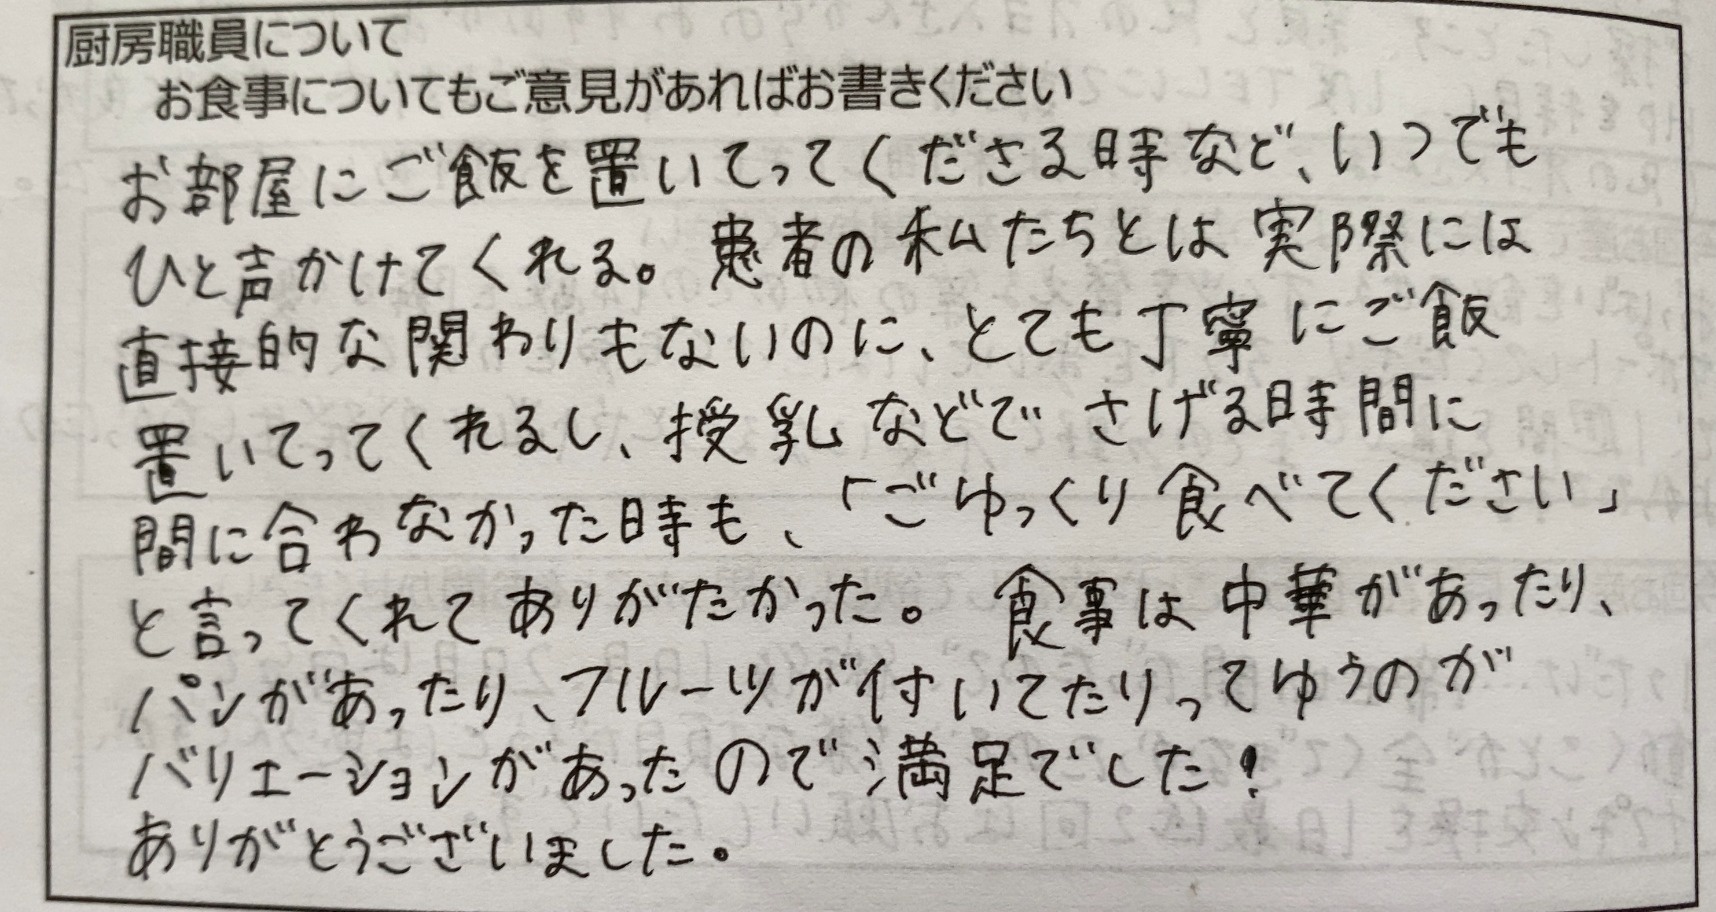 厨房職員について
お食事についてもご意見があればお書きください
お部屋にご飯を置いてってくださる時など、いつでも
ひと声かけてくれる。患者の私たちとは実際には
直接的な関わりもないのに、とても丁寧にご飯
置いてってくれるし、授乳などでさげる時間に
間に合わなかった時も、「ごゆっくり食べてください」
と言ってくれてありがたかった。食事は中華があったり、
パンがあったり、フルーツが付いてたりってゆうのが
バリエーションがあったので満足でした!
ありがとうございました。